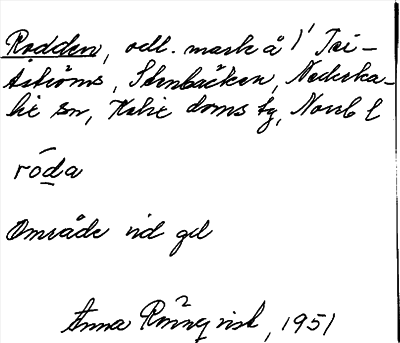 Rodden, odl. mark å 1/1 Tri-
ströms, Stenbäcken, Nederka-
lix sn, Kalix doms tg, Norrb l
róda
Område vid gd
Anna Rönnqvist, 1951